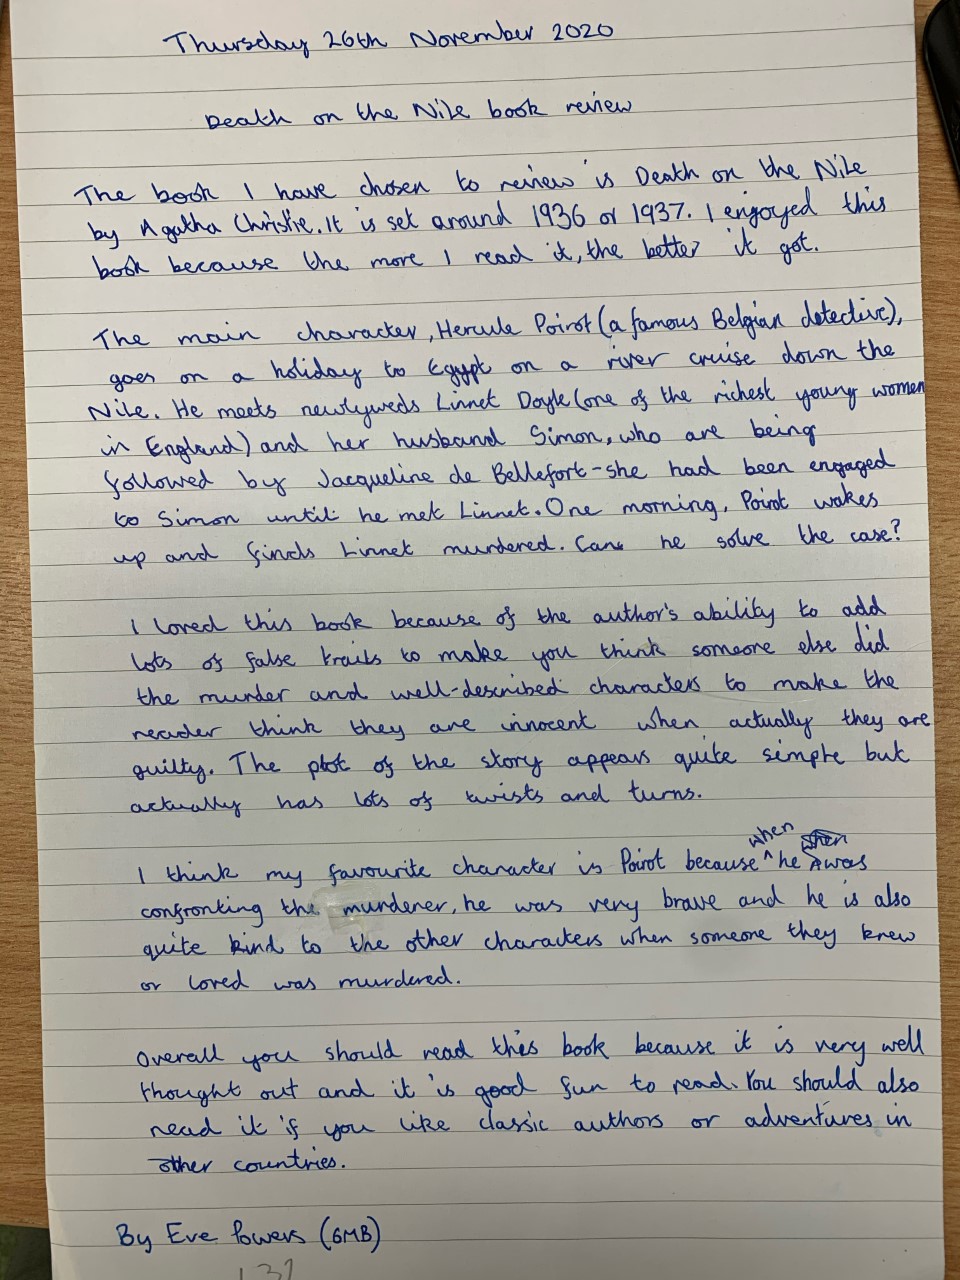 Thursday 26th November 2020
Death on the Nile book review
The book I have chosen to review is Death on the Nile
by Agatha Christie. It is set around 1936 or 1937. I enjoyed this
book because the more I read it, the better it got.
The main character, Hercule Poirot (a famous Belgian detective),
goes on a holiday to Egypt on a river cruise down the
Nile. He meets newlyweds Linnet Doyle (one of the richest young women
in England) and her husband Simon, who are being
followed by Jacqueline de Bellefort - she had been engaged
to Simon until he met Linnet. One morning, Poirot wakes
up and finds Linnet murdered. Can he solve the case?
I loved this book because of the author's ability to add
lots of false trails to make you think someone else did
the murder and well-described characters to make the
reader think they are innocent when actually they are
guilty. The plot of the story appears quite simple but
actually has lots of twists and turns.
I think my favourite character is Poirot because when he was
confronting the murderer, he was very brave and he is also
quite kind to the other characters when someone they knew
or loved was murdered.
Overall you should read this book because it is very well
thought out and it is good fun to read. You should also
read it if you like classic authors or adventures in
other countries.
By Eve Powers (6MB)